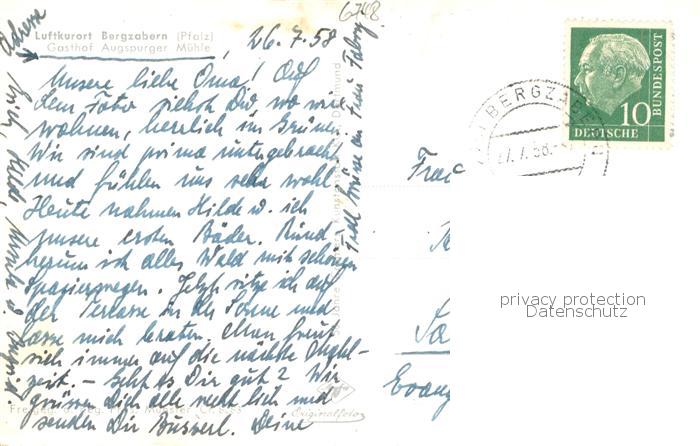 6748
Adresse
Luftkurort Bergzabern (Pfalz)
Gasthof Augspurger Mühle
, 26.7.58
Unsere liebe Oma! Auf
dem Foto siehst Du, wo wir
wohnen, herrlich im Grünen.
Wir sind prima untergebracht
und fühlen uns sehr wohl.
Heute nahmen Hilde u. ich
unsere ersten Bäder. Rund-
herum ist alles Wald mit schönen
Spazierwegen. Jetzt sitze ich auf
der Terrasse in der Sonne und
lasse mich braten. Man freut
sich immer auf die nächste Mahl-
zeit. – Geht es Dir gut? Wir
grüssen Dich alle recht lich und
senden Dir Busserl. Deine
Hilde,
Originalfoto
BERGZABE
27.7.58.
10
DEUTSCHE
BUNDESPOST
Frau
Evang
privacy protection
Datenschutz